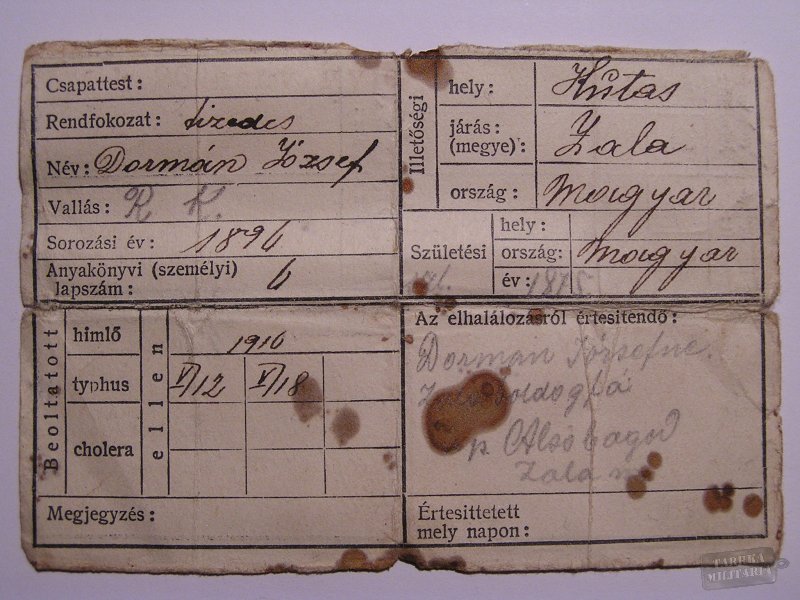 Csapattest:
Rendfokozat: tizedes
Név: Dormán József
Vallás: R. K.
Sorozási év: 1896
Anyakönyvi (személyi) lapszám: 6
Illetőségi
hely: Kutas
járás: (megye): Zala
ország: Magyar
Születési
hely:
ország: Magyar
év: 1875
Beoltatott
ellen
himlő
1916
typhus V/12 V/18
cholera
Megjegyzés:
Az elhalálozásról értesitendő:
Dormán Józsefné
Zalaboldogfa
p. Alsóbagod
Zala m
Értesittetett mely napon:
TARFKA
MILITARIA